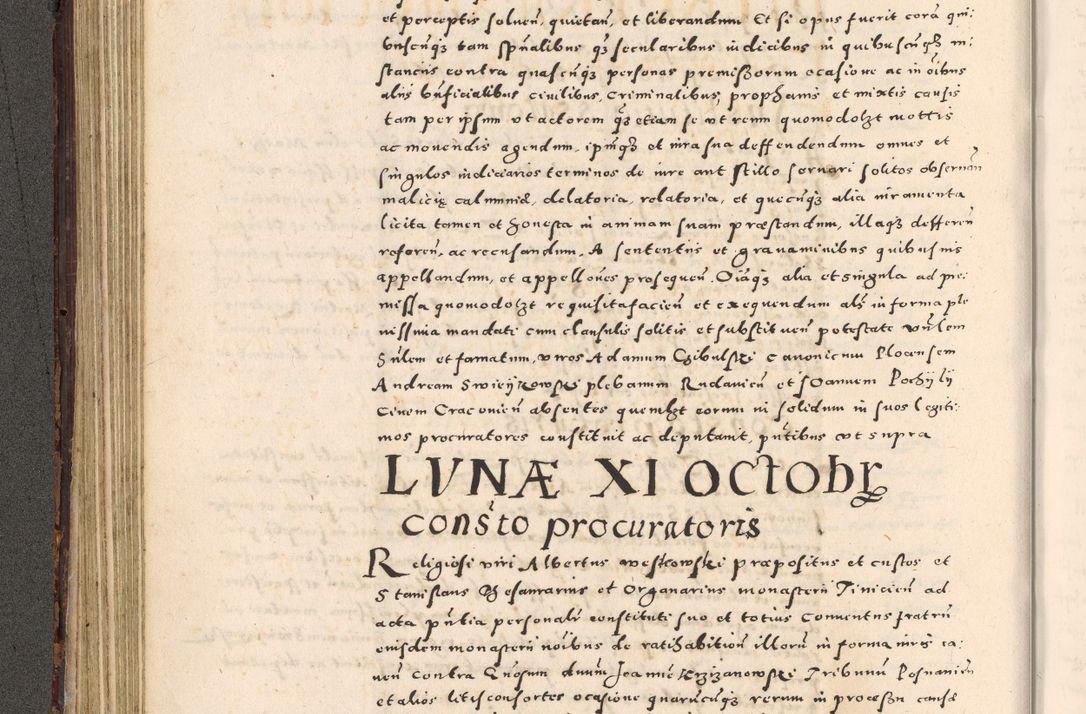 et perceptis solven̄, quietan̄, et liberandum Et si opus fuerit corā qui:
buscūqȝ tam spn̄alibus qȝ secularibus iudicibus in quibuscūqȝ in:
stanciis contra quascūqȝ personas premissorum ocasione ac in oībus
aliis bn̄ficialibus civilibus, Criminalibus, prophanis et mixtis causis
tam per ipsum ut actorem qȝ etiam se ut reum quomodolȝt mottis
ac movendis agendum, ipūqȝ et iura sua deffendendum omnes et
singulos iudiciarios terminos de iure aut stillo servari solitos observan̄
malicię calumnię, delatoria, relatoria, et quecūqȝ alia iuramenta
licita tamen et honesta in animam suam præstandum, illaqȝ defferen̄
referen̄, ac recusandum, A sententiis et gravaminibus quibusuis
appellandum, et appellōnes prosequen̄. Oīāqȝ alia et singula ad pre:
missa quomodolȝt requisita facien̄ et exequendum als in forma ple
nissima mandati cum clausulis solitis et substituen̄ potestate vūlem
Hn̄lem et famatum, viros Adamum Czibulski Canonicum Plocensem
Andream Swieijkowski plebanum Rudavien̄ et Joannem Pochijlij
Civem Cracovien̄ absentes quemlȝt eorum in solidum in suos legiti:
mos procuratores constituit ac deputavit, pn̄tibus ut supra
LVNÆ XI OCTOBR
consto procuratoris
Religiosi viri Albertus weskowski præpositus et custos et
Stanislaus Thesaurarius et Organarius monasterii Tinicien̄ ad
acta pn̄tia personalr̄ constituti suo et totius Conventus fratrū
eiusdem monasterii noībus de ratihabitiōn illorū in forma iuris ca:
uen̄ Contra Gn̄osum dnum Joannē krzizanowski Tribunū Posnanien̄
et alios litis consortes ocasione quarūcūqȝ rerum in processu causę